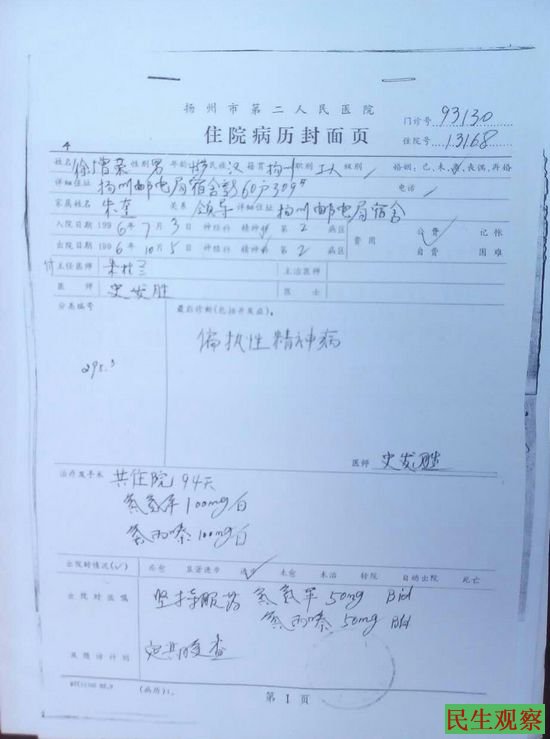 扬州市第二人民医院
门诊号 93130
住院病历封面页
住院号 13168
4
姓名 徐增荣 性别 男 年龄 民族 汉 籍贯 扬州 职别 工人 级别 婚姻:已、未、离、丧偶、再婚
详细住址 扬州邮电局宿舍 60户309# 电话
家属姓名 朱奎 关系 领导 详细住址 扬州邮电局宿舍
入院日期 1996年7月3日 神经科 精神科 第2病区 费用 公费 记帐
出院日期 1996年10月5日 神经科 精神科 第2病区 自费 困难
付主任医师 主治医师
医师 史发胜 医士
分类编号 最后诊断(包括并发症)。
偏执性精神病
295.3
医师 史发胜
治疗及手术 共住院94天
氯氮平100mg/日
氯丙嗪100mg/日
出院时情况(√) 痊愈 显著进步 进步 未愈 未治 转院 自动出院 死亡
出院时医嘱 坚持服药 氯氮平 50mg Bid
氯丙嗪 50mg Bid
及随访计划 定期复查
(病历)1.
第1页
民生观察